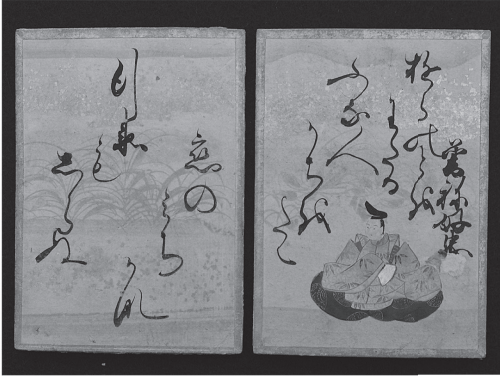 曽祢好忠
由らのとを
わたる
ふな人
かちを
たえ
行衛
も
しらぬ
恋の
みち
かな